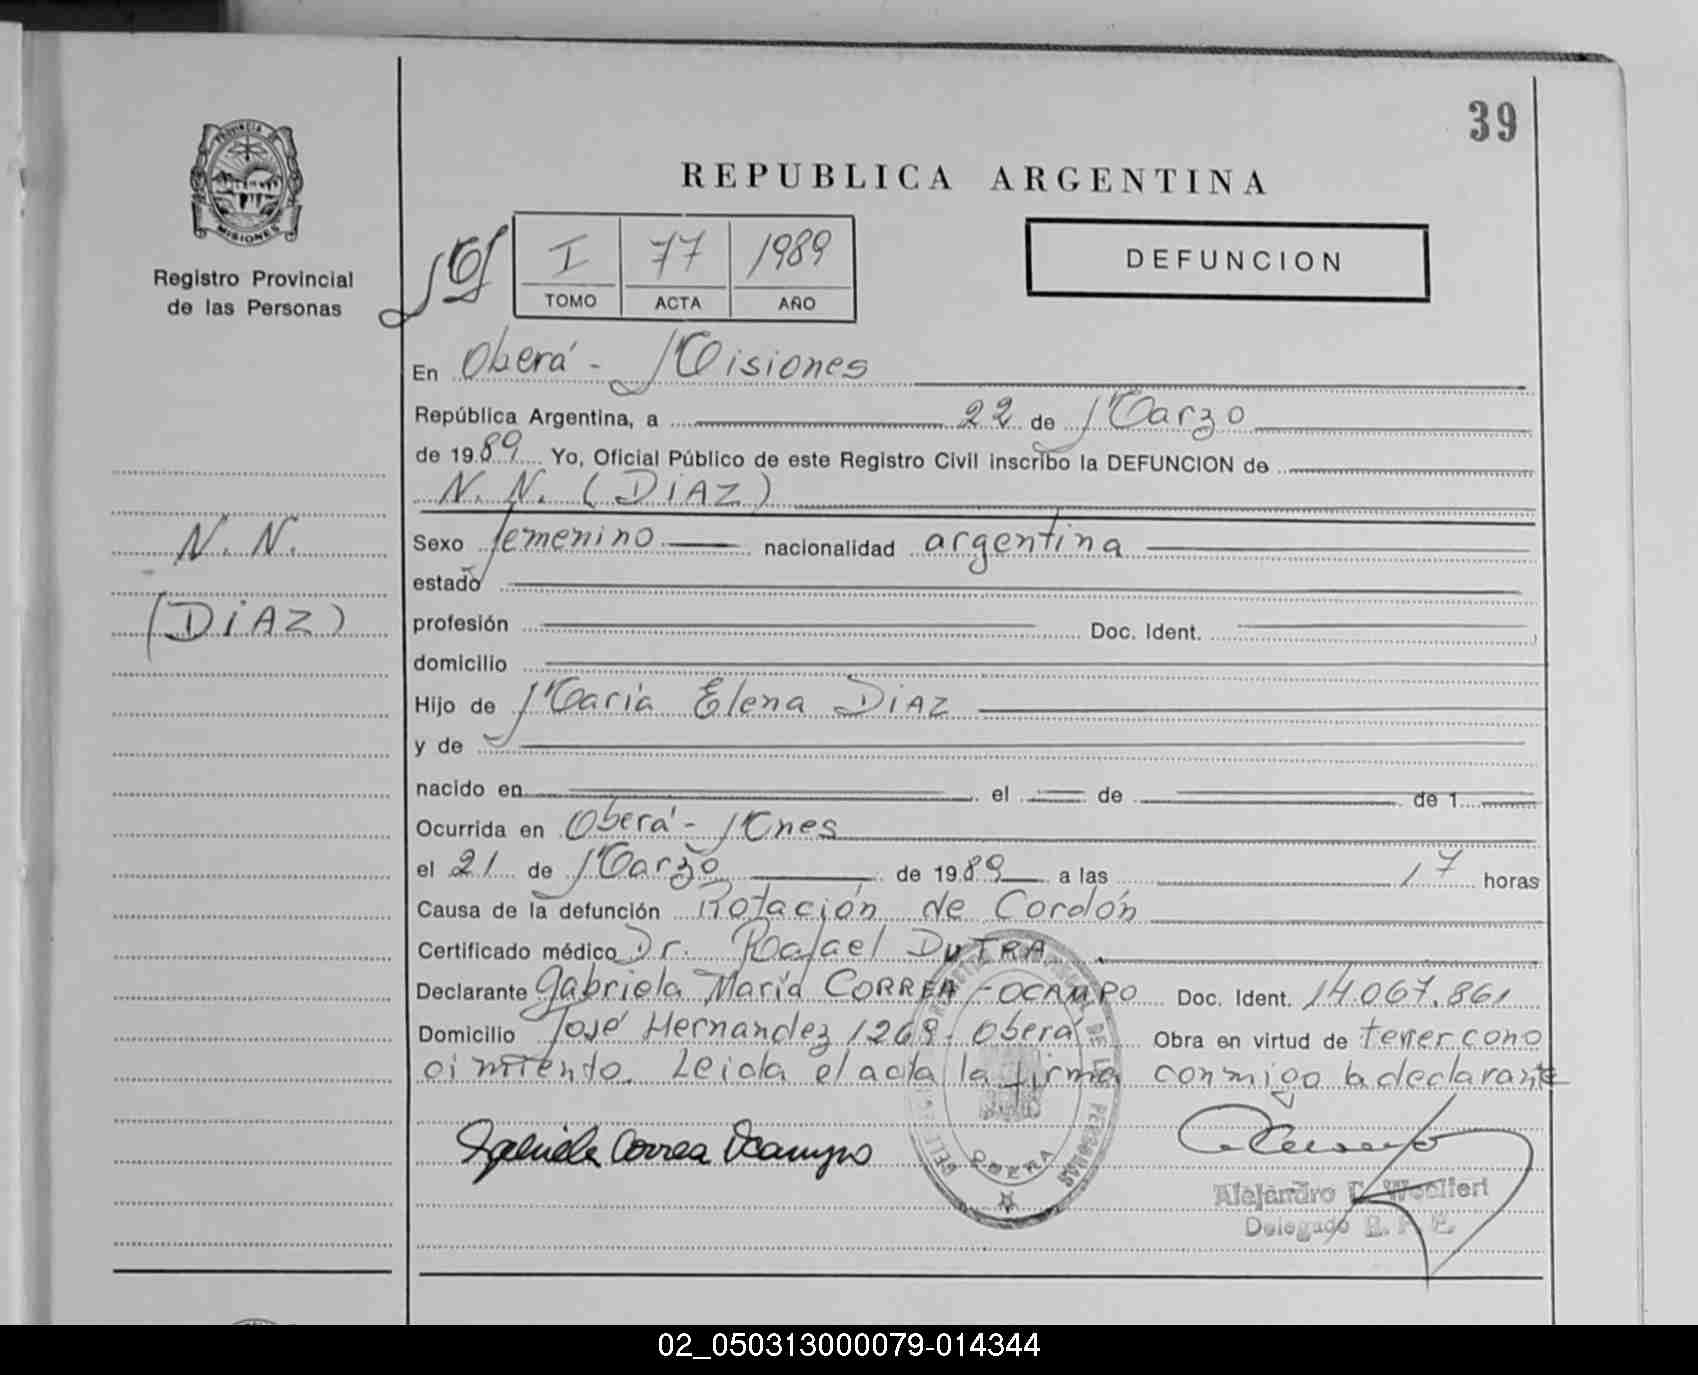 39
PROVINCIA DE
MISIONES
Registro Provincial
de las Personas
REPUBLICA ARGENTINA
I 77 1989
TOMO ACTA AÑO
DEFUNCION
En Oberá - Misiones
República Argentina, a 22 de Marzo
de 1989 Yo, Oficial Público de este Registro Civil inscribo la DEFUNCION de
N. N. (DIAZ)
N. N.
(DIAZ)
Sexo femenino nacionalidad argentina
estado
profesión Doc. Ident.
domicilio
Hijo de María Elena DIAZ
y de
nacido en el de de 1
Ocurrida en Oberá - Mnes
el 21 de Marzo de 1989 a las 17 horas
Causa de la defunción Rotación de Cordón
Certificado médico Dr. Rafael DUTRA
Declarante Gabriela María CORREA - OCAMPO Doc. Ident. 14.067.861
Domicilio José Hernandez 1268 - Oberá Obra en virtud de tener cono
cimiento. Leida el acta la firma conmigo la declarante
Gabriela Correa Ocampo
OBERA
Alejandro
Delegado R. P. P.
02_050313000079-014344